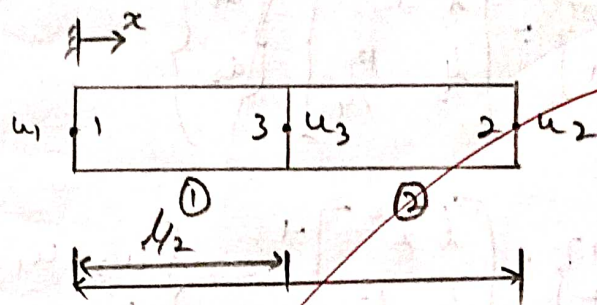 x
u₁ 1 3 u₃ 2 u₂
① ②
l/2